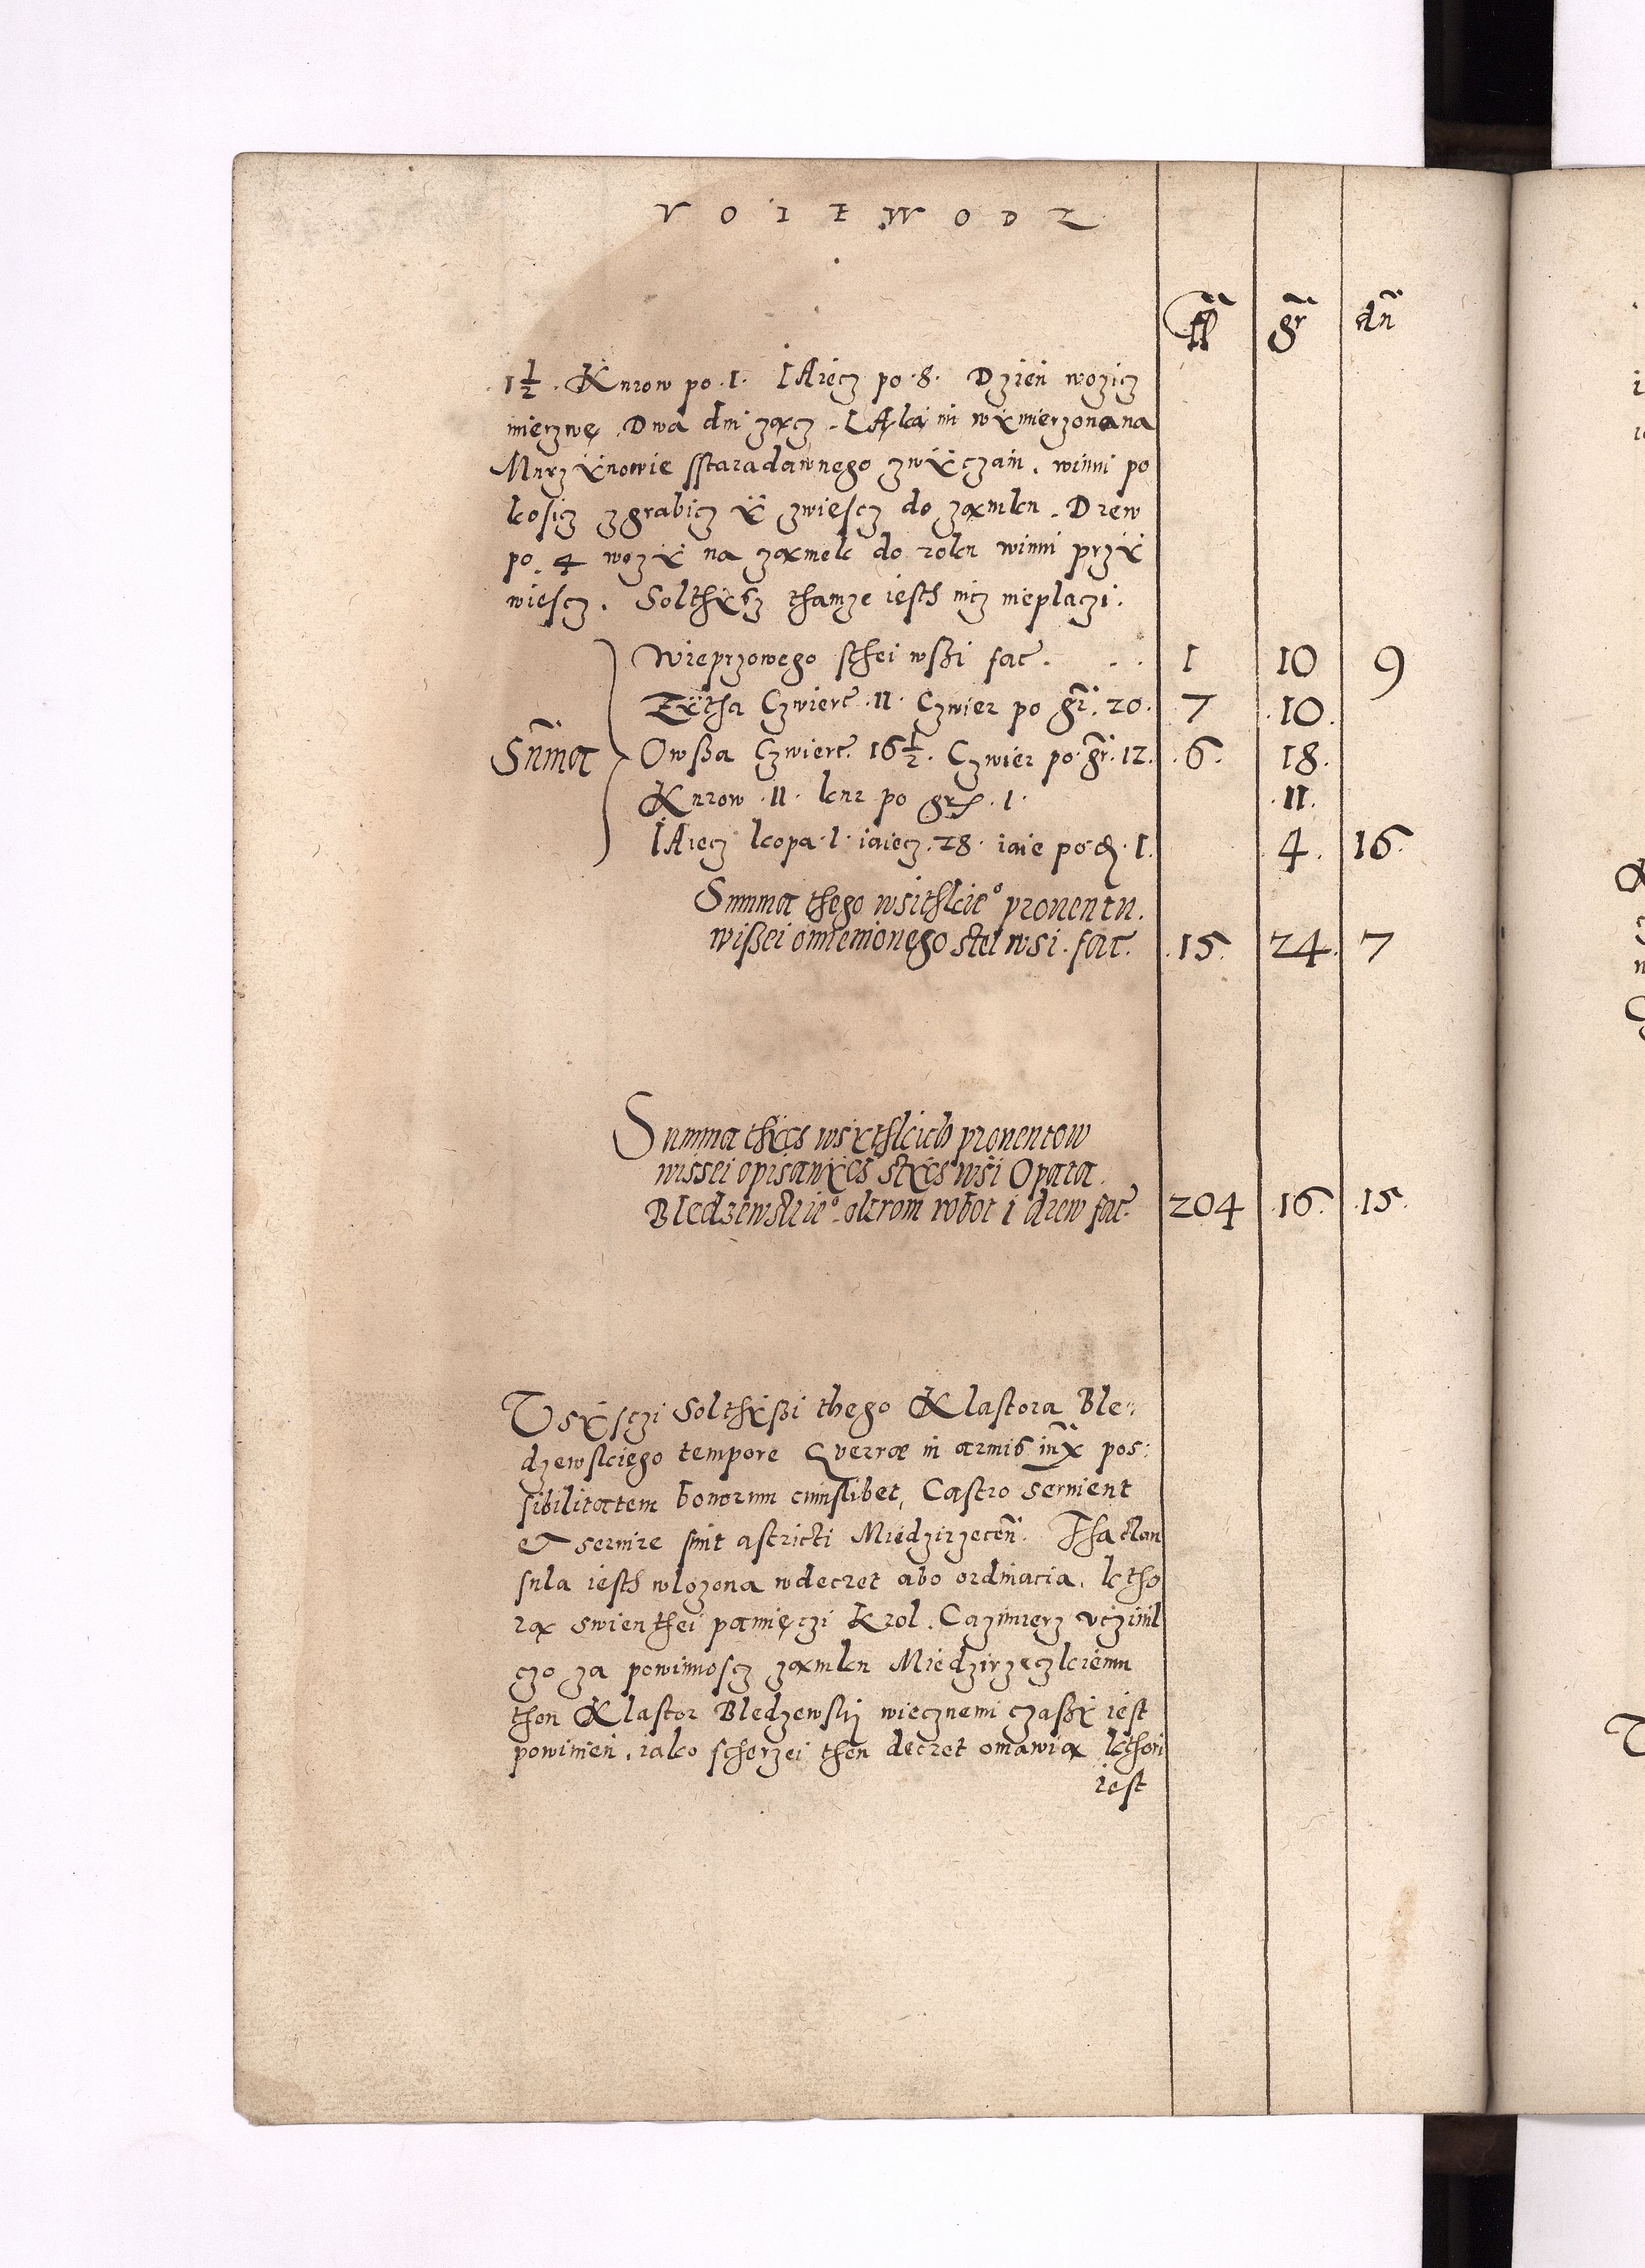 VOIEWODZ
fl gr dn
1½. Kurow po .1. IAiecz po .8. Dzien wozicz
mierzwę. Dwa dni zącz. LĄkąm wÿmierzonąna
MurzÿnowieSstaradawnego zwÿczaiu. winni po
kosicz zgrabicz ÿ zwiescz do ząmku. Drew
po .4 wozÿ na ząmek do roku winni przÿ
wiescz. Solthÿsz thamze iesth nicz nieplaczi.
Wieprzowego sthei wßi fac. 1 10 9
Zÿtha Czwiert .11. Czwier po gr. 20. 7 .10.
Suma Owßa Czwiert. 16½. Czwier po gr. 12. .6. 18.
Kurow .11. kur po gr. 1. .11.
IAiecz kopa .1. iaiecz .28. iaie po d. 1. 4. 16.
Summa thego wsithkieo prouentu
wißei omienionego stei wsi. fac. .15. 24. 7
Summa thÿch wsÿthkich prouentow
wissei opisanÿch stÿch wsi Opata
Bledzewskieo. okrom robot i drew fac. 204 .16. .15.
Tsÿsczi Solthÿßi thego Klastora Ble-
dzewskiego tempore Guerræ in armis iux pos:
sibilitatem bonorum cuiuslibet, Castro seruient
et seruire sint astricti Miedzirzecen. Tha clau
sula iesth wlozona wdecret abo ordinacia. ktho
rą swienthei pamięczi Krol. Cazimierz vczinil
czo za powinnoscz ząmku Miedzirzęczkiemu
then Klastor Bledzewskj wiecznemi czaßÿ iest
powinien. iako scherzei then decret omawią kthori
iest